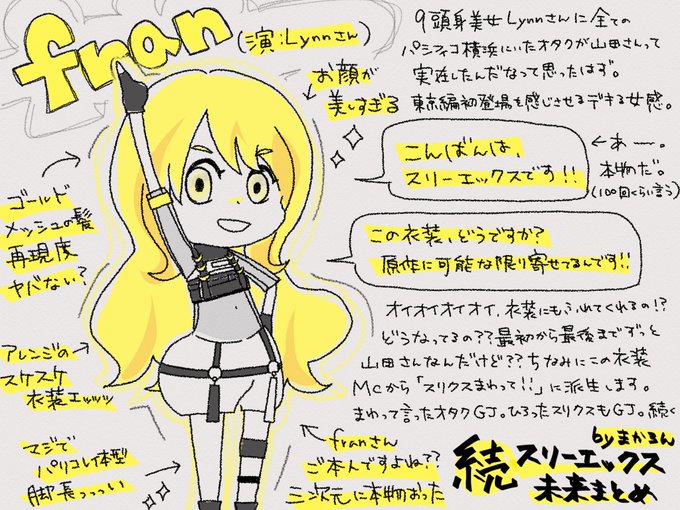 fran
(演:Lynnさん)
お顔が
美しすぎる
9頭身美女Lynnさんに全ての
パシフィコ横浜にいたオタクが山田さんって
実在したんだなって思ったはず。
東京編初登場を感じさせるデキる女感。
こんばんは、
スリーエックスです!!
←あー。
本物だ。
(100回くらい言う)
この衣装、どうですか?
原作に可能な限り寄せてるんです!!
オイオイオイオイ、衣装にもふれてくれるの!?
どうなってるの??最初から最後までずっと
山田さんなんだけど??ちなみにこの衣装
MCから「スリクスまわって!!」に派生します。
まわって言ったオタクGJ。ひろったスリクスもGJ。続く
ゴールド
メッシュの髪
再現度
ヤバない?
アレンジの
スケスケ
衣装エッッッ
マジで
パリコレ体型
脚長っっっい
franさん
ご本人ですよね??
三次元に本物おった
byまかろん
続スリーエックス
未来まとめ